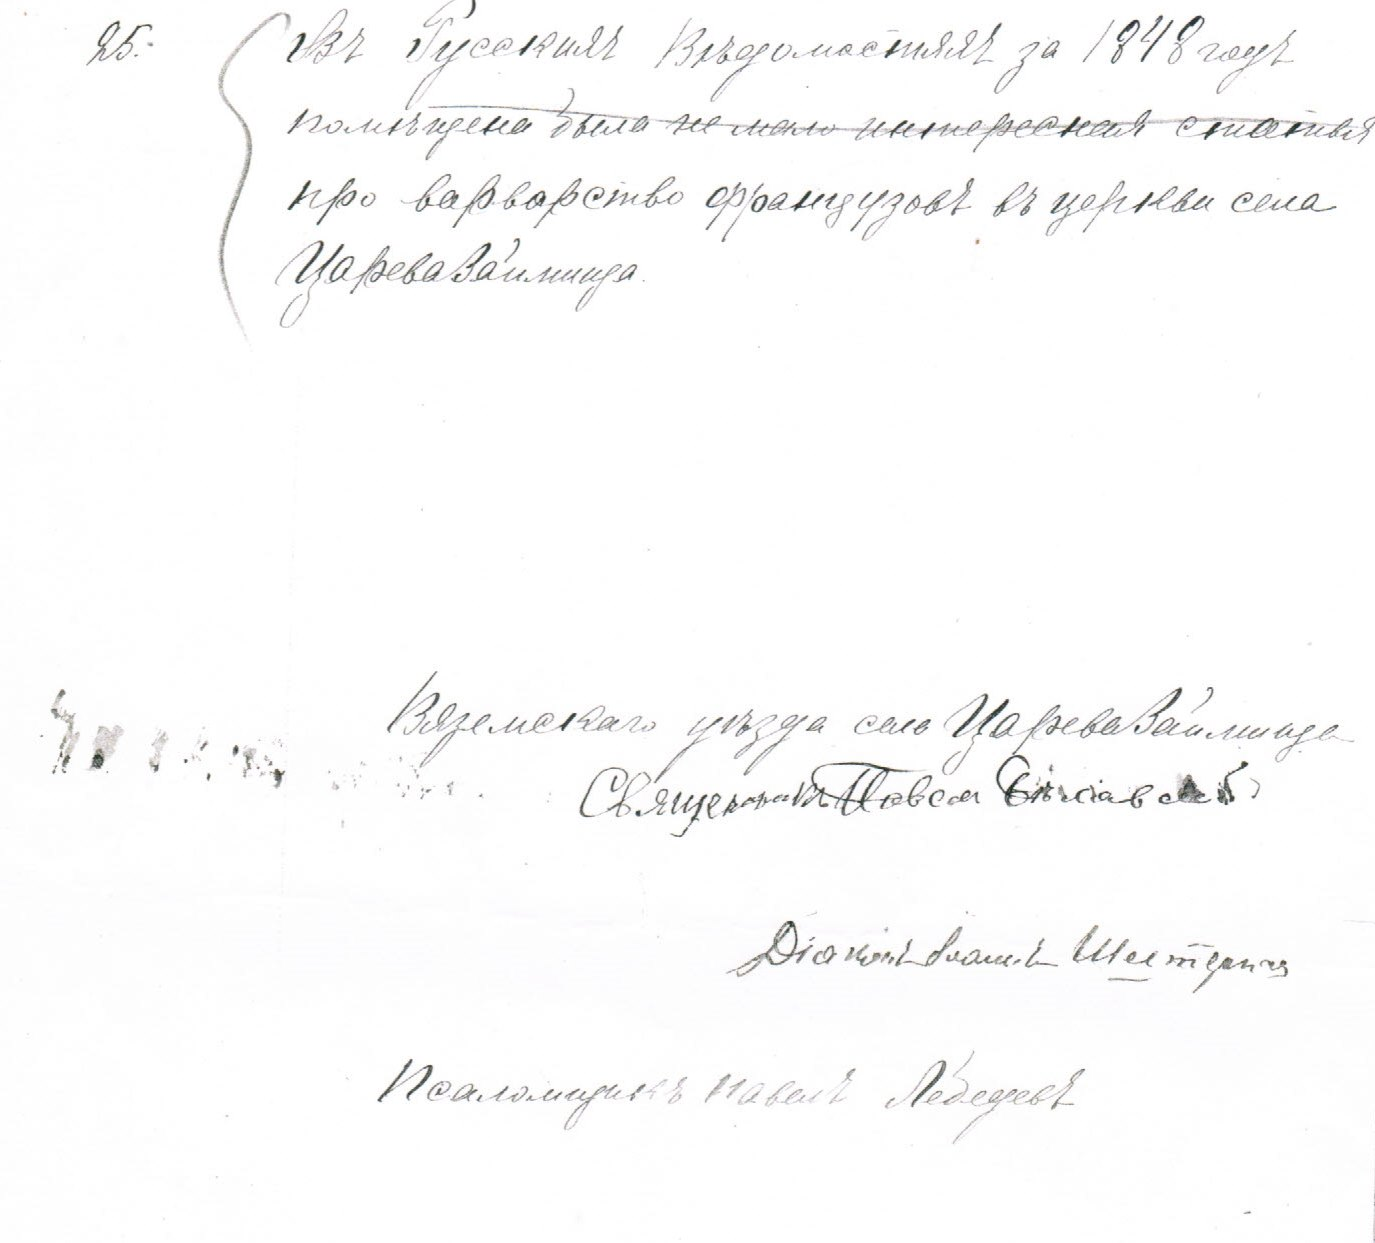 25.
Въ Русскихъ Вѣдомостяхъ за 1848 годъ
помѣщена была не мало интересная статья
про варварство французовъ въ церкви села
Царева Займища.
Вяземскаго уѣзда села Царева Займища
Священникъ Павелъ
Діаконъ Іоаннъ
Псаломщикъ Павелъ Лебедевъ